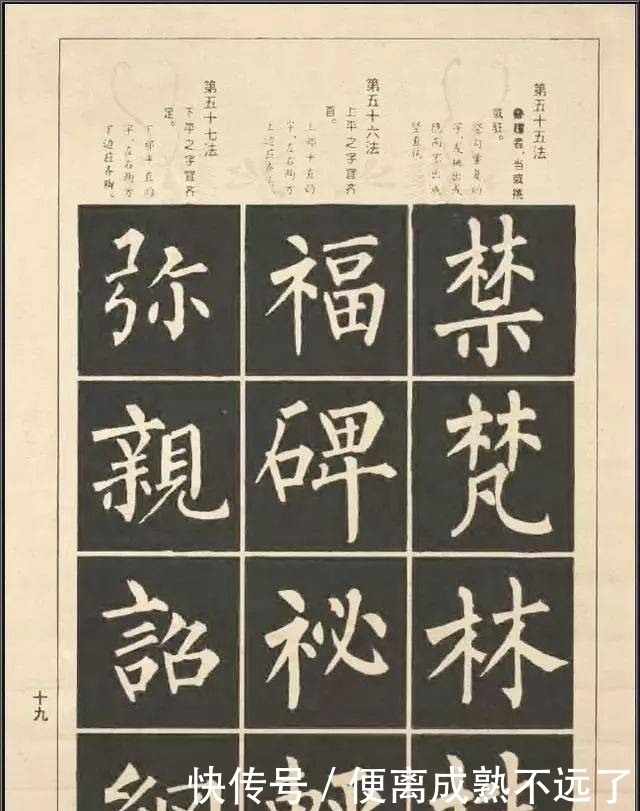 第五十五法
叠趯者，当或挑
或驻。
竖勾重复的
字，或挑出或
隐而不出或
第五十六法
上平之字宜齐
首。
上部平直的
字，左右两方
上边应齐头。
第五十七法
下平之字宜齐
足。
下部平直的
字，左右两方
下边应齐脚。
禁
梵
林
福
碑
祕
弥
親
詔
十九
快传号 / 便离成熟不远了